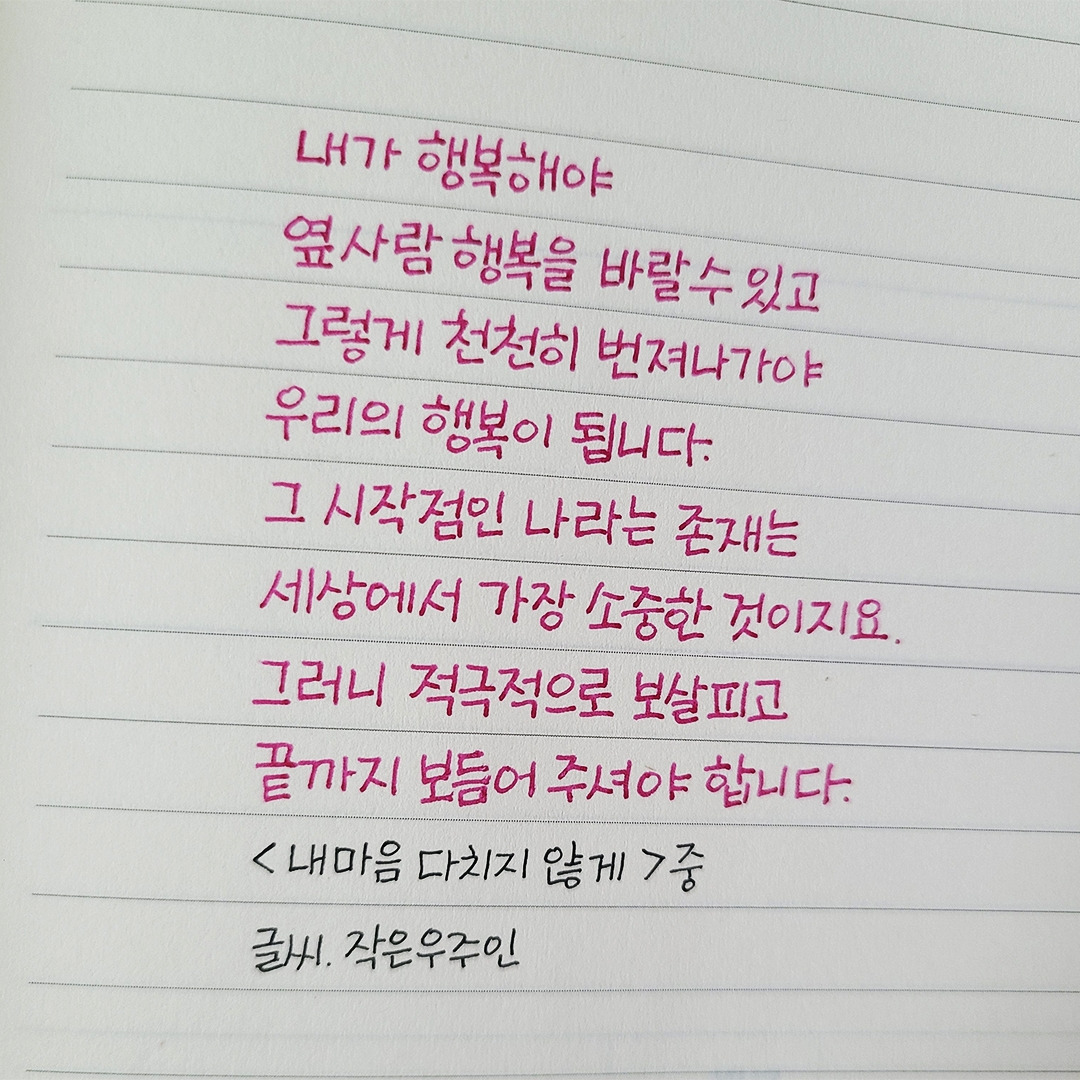 내가 행복해야
옆사람 행복을 바랄수 있고
그렇게 천천히 번져나가야
우리의 행복이 됩니다.
그 시작점인 나라는 존재는
세상에서 가장 소중한 것이지요.
그러니 적극적으로 보살피고
끝까지 보듬어 주셔야 합니다.
<내마음 다치지 않게>중
글씨. 작은우주인